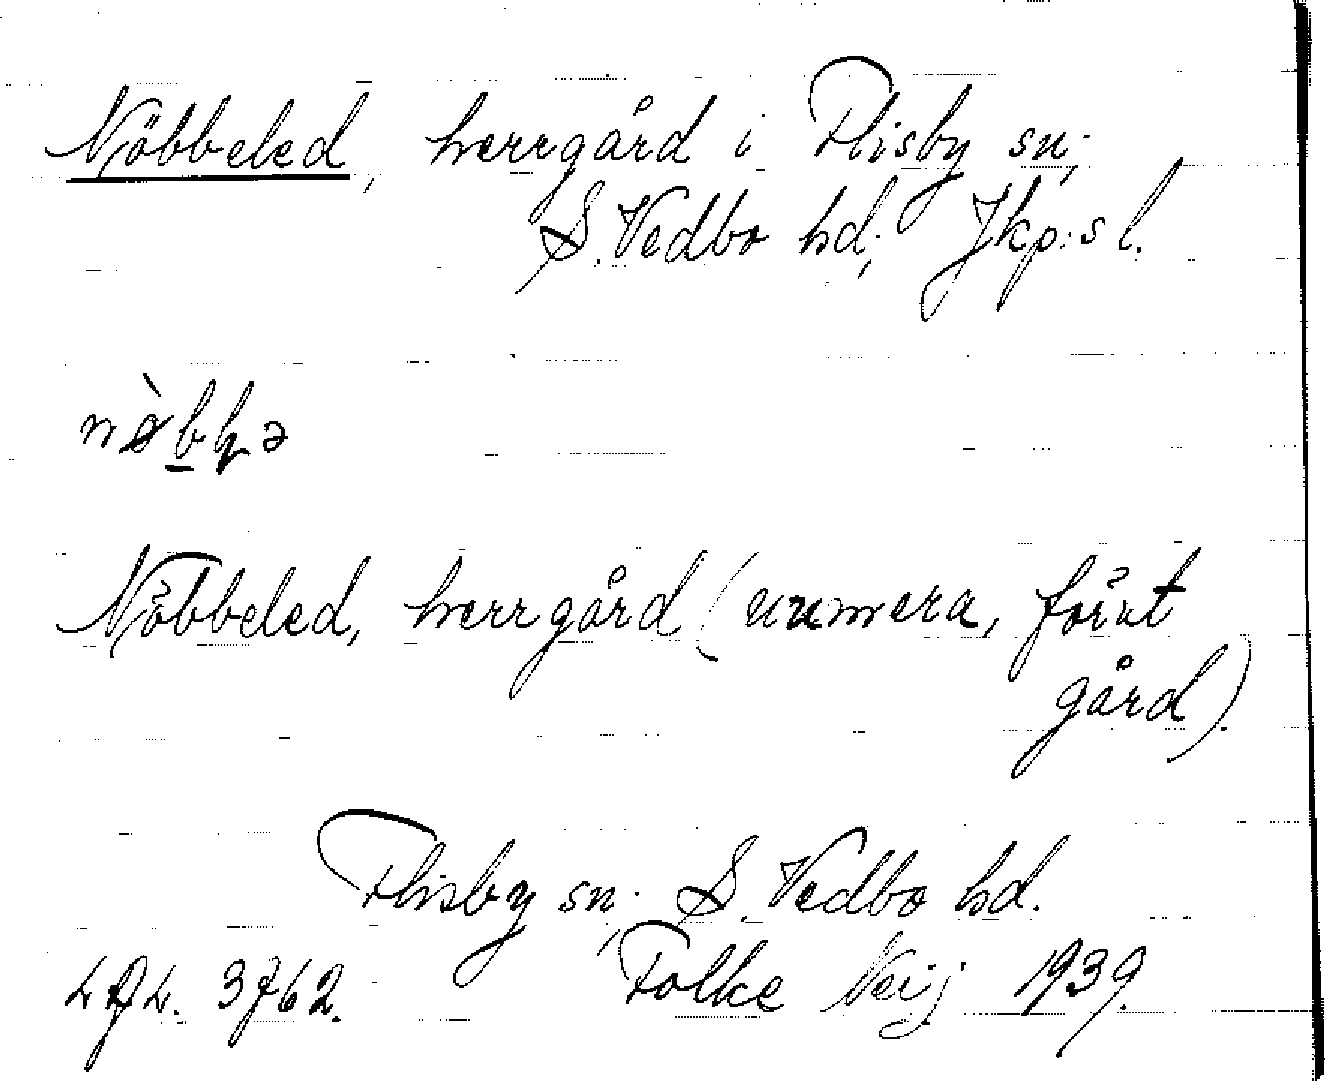 Nöbbeled, herrgård i Flisby sn;
S. Vedbo hd; Jkp:s l.
Nöbbeled, herrgård (numera, förut
gård).
Flisby sn; S. Vedbo hd.
3762. Folke Neij 1939.